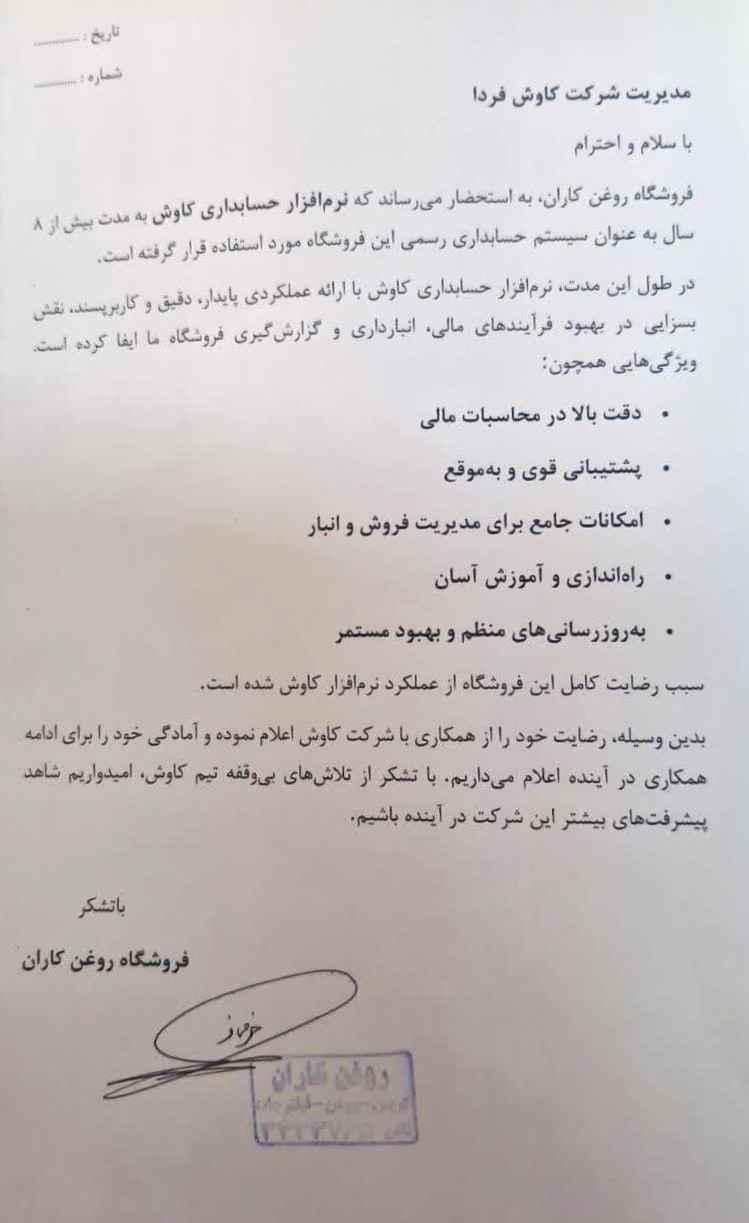 تاریخ : ............
شماره : ............
مدیریت شرکت کاوش فردا
با سلام و احترام
فروشگاه روغن کاران، به استحضار می‌رساند که نرم‌افزار حسابداری کاوش به مدت بیش از ۸
سال به عنوان سیستم حسابداری رسمی این فروشگاه مورد استفاده قرار گرفته است.
در طول این مدت، نرم‌افزار حسابداری کاوش با ارائه عملکردی پایدار، دقیق و کاربرپسند، نقش
بسزایی در بهبود فرآیندهای مالی، انبارداری و گزارش‌گیری فروشگاه ما ایفا کرده است.
ویژگی‌هایی همچون:
• دقت بالا در محاسبات مالی
• پشتیبانی قوی و به‌موقع
• امکانات جامع برای مدیریت فروش و انبار
• راه‌اندازی و آموزش آسان
• به‌روزرسانی‌های منظم و بهبود مستمر
سبب رضایت کامل این فروشگاه از عملکرد نرم‌افزار کاوش شده است.
بدین وسیله، رضایت خود را از همکاری با شرکت کاوش اعلام نموده و آمادگی خود را برای ادامه
همکاری در آینده اعلام می‌داریم. با تشکر از تلاش‌های بی‌وقفه تیم کاوش، امیدواریم شاهد
پیشرفت‌های بیشتر این شرکت در آینده باشیم.
باتشکر
فروشگاه روغن کاران
روغن کاران